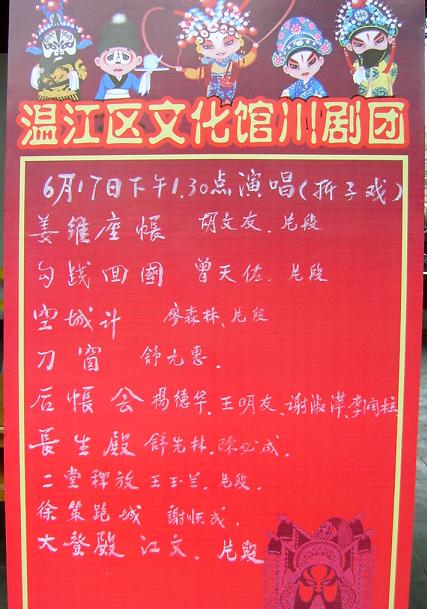 温江区文化馆川剧团
6月17日下午1.30点演唱(折子戏)
姜維座帳 胡文友、片段
勾践回國 曾天佐、片段
空城计 廖森林、片段
刀窗 舒元惠.
后帳会 楊德华、王明友、谢淑漢、李润柱
長生殿 舒先林、陈必成、
二堂釋放 王玉兰、片段.
徐策跑城 謝顺成、
大登殿 江文、片段